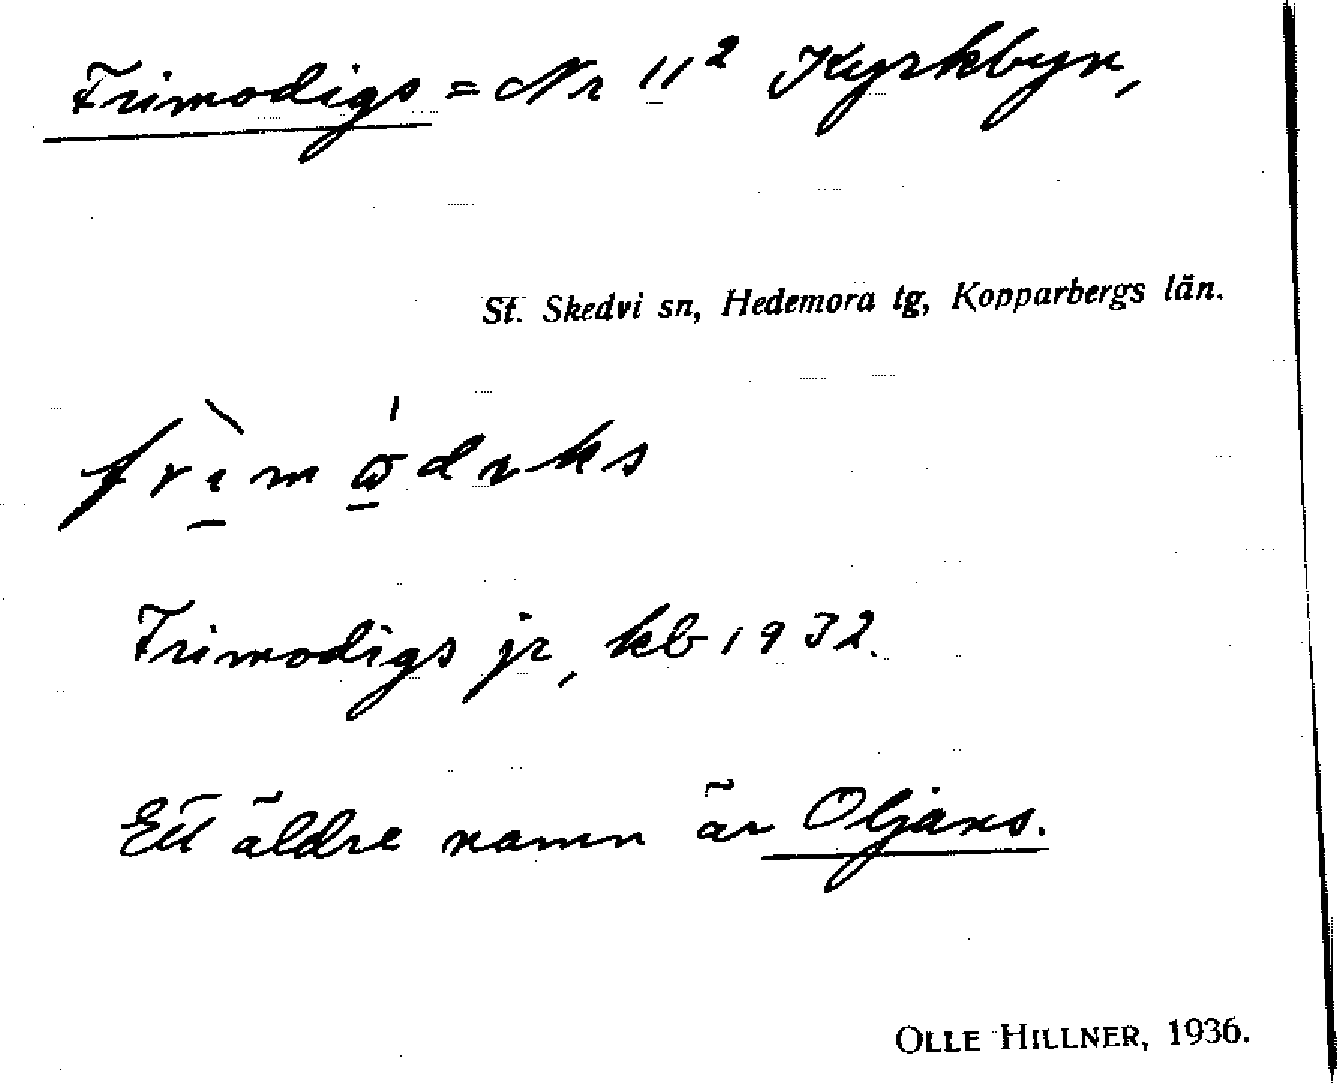 Frimodigs = Nr 11² Kyrkbyn,
St. Skedvi sn, Hedemora tg, Kopparbergs län.
Frimodigs jr, kb 1932.
Ett äldre namn är Oljans.
OLLE HILLNER, 1936.